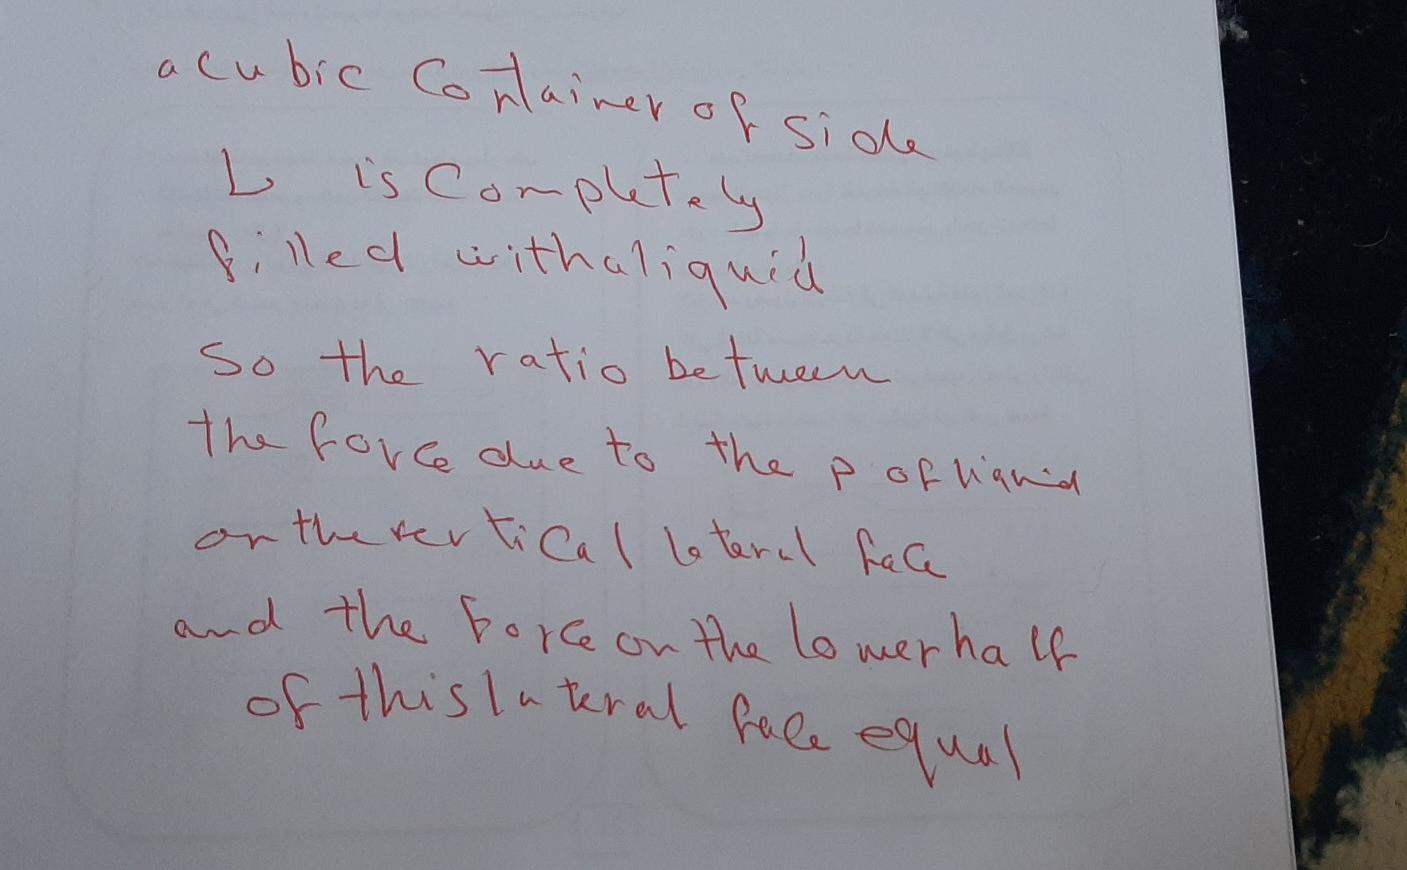 a cubic Container of side
L is Completely
filled with a liquid
So the ratio between
the force due to the P of liquid
on the vertical lateral face
and the force on the lower half
of this lateral face equal